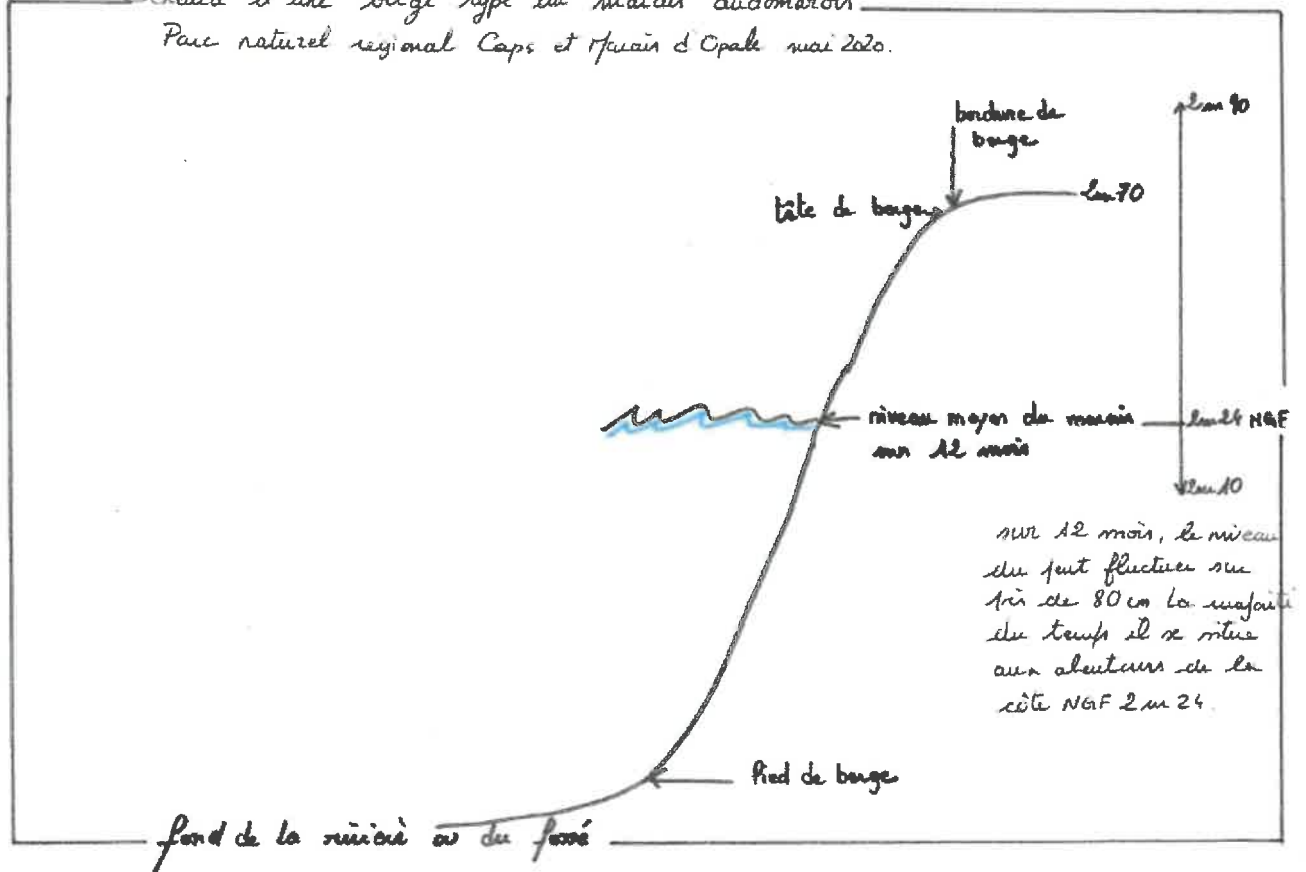 d'une berge type du marais audomarois
Parc naturel regional Caps et Marais d'Opale mai 2020.
bordure de
berge
2 m 90
tête de berge
2m70
niveau moyen du marais
sur 12 mois
2m24 NGF
2m10
sur 12 mois, le niveau
du peut fluctuer sur
près de 80 cm La majorité
du temps il se situe
aux alentours de la
côte NGF 2 m 24
Pied de berge
fond de la rivière ou du fossé